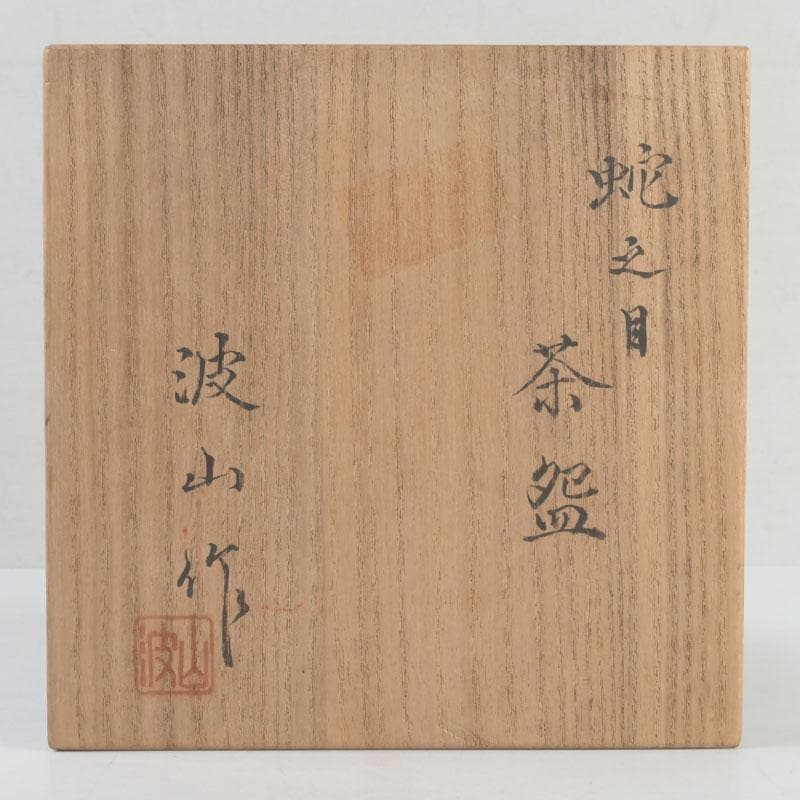 蛇之目
茶盌
波山作
波山